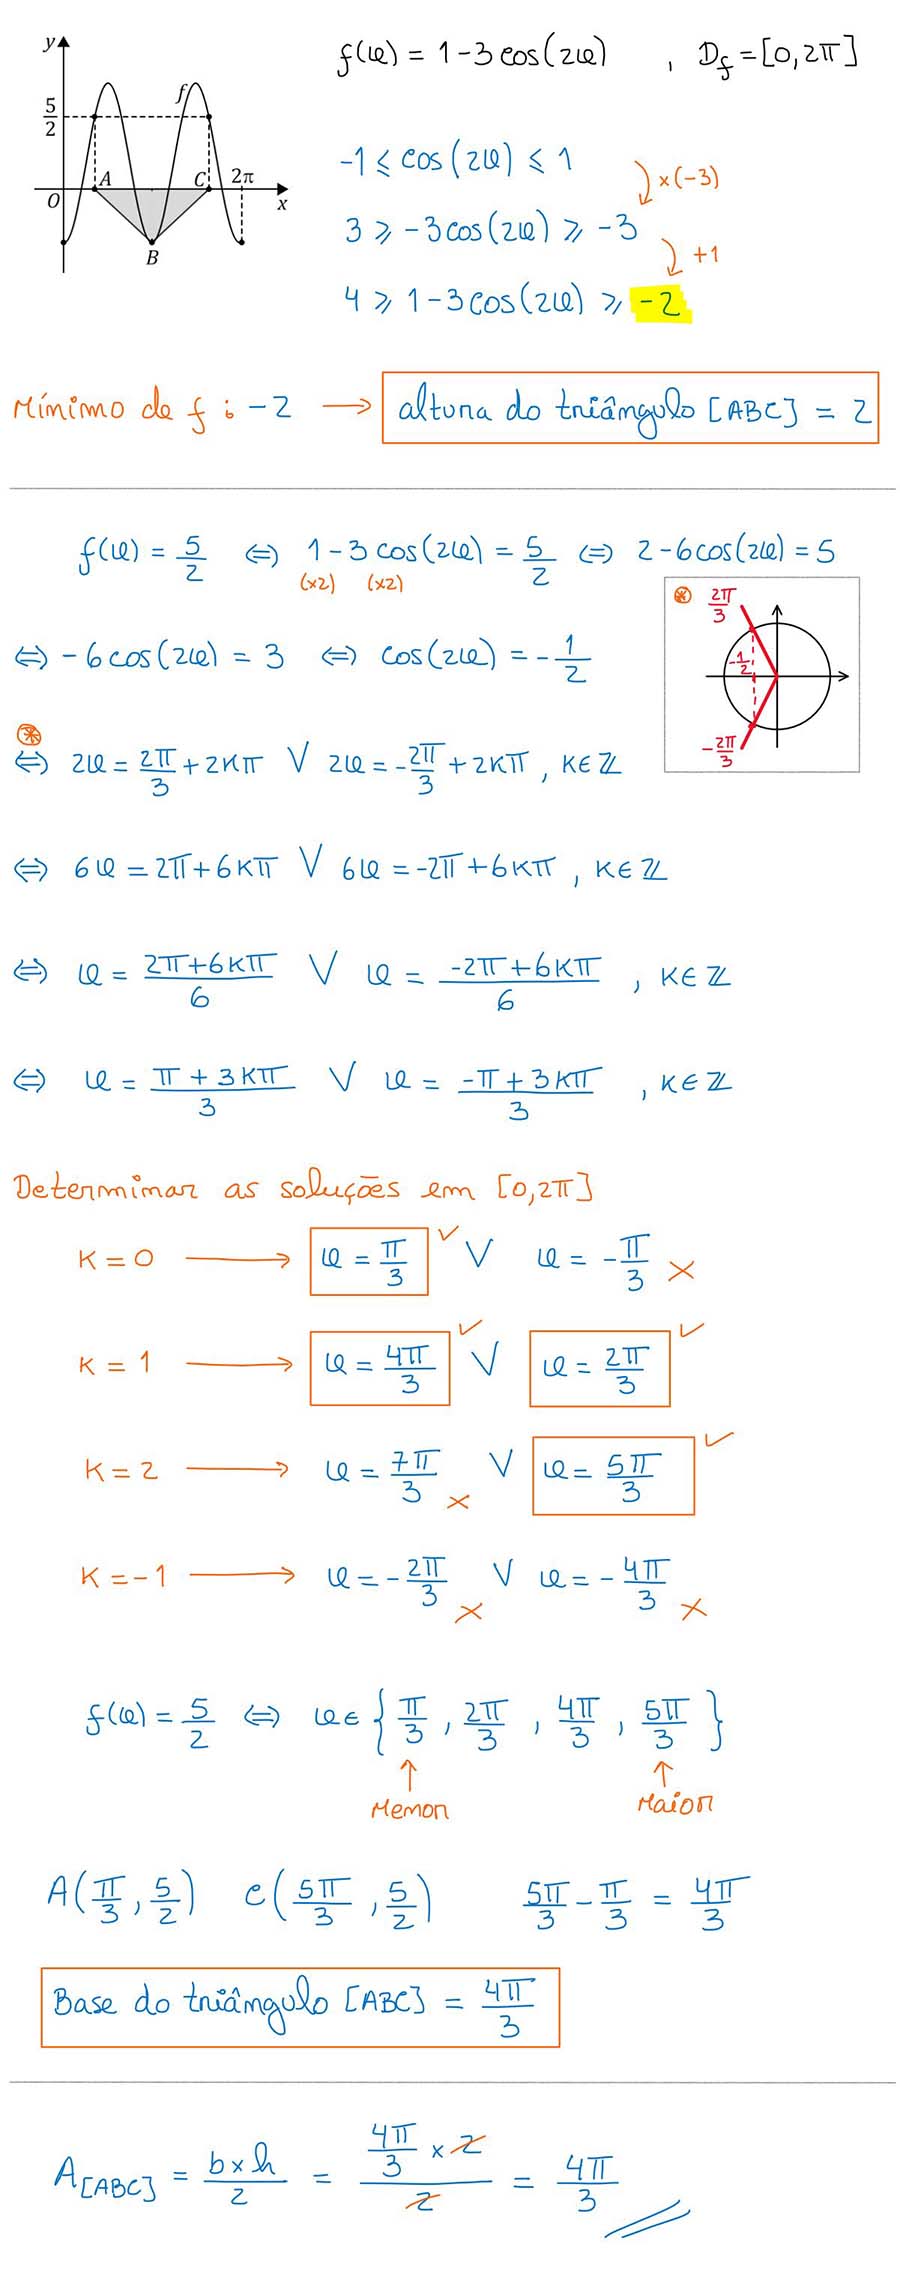 y
f
5/2
A
C
2π
O
x
B
f(x) = 1-3cos(2x) , Df = [0,2π]
-1 ⩽ cos(2x) ⩽ 1
×(-3)
3 ⩾ -3cos(2x) ⩾ -3
+1
4 ⩾ 1-3cos(2x) ⩾ -2
Mínimo de f : -2 → altura do triângulo [ABC] = 2
f(x) = 5/2 ⇔ 1-3cos(2x) = 5/2 ⇔ 2-6cos(2x) = 5
(×2) (×2)
⊛ 2π/3
-1/2
-2π/3
⇔ -6cos(2x) = 3 ⇔ cos(2x) = -1/2
⊛
⇔ 2x = 2π/3 + 2kπ ∨ 2x = -2π/3 + 2kπ , k∈ℤ
⇔ 6x = 2π+6kπ ∨ 6x = -2π+6kπ , k∈ℤ
⇔ x = (2π+6kπ)/6 ∨ x = (-2π+6kπ)/6 , k∈ℤ
⇔ x = (π+3kπ)/3 ∨ x = (-π+3kπ)/3 , k∈ℤ
Determinar as soluções em [0,2π]
k = 0 → x = π/3 ✓ ∨ x = -π/3 ×
k = 1 → x = 4π/3 ✓ ∨ x = 2π/3 ✓
k = 2 → x = 7π/3 × ∨ x = 5π/3 ✓
k = -1 → x = -2π/3 × ∨ x = -4π/3 ×
f(x) = 5/2 ⇔ x∈ { π/3 , 2π/3 , 4π/3 , 5π/3 }
↑ ↑
Menor Maior
A(π/3 , 5/2) C(5π/3 , 5/2) 5π/3 - π/3 = 4π/3
Base do triângulo [ABC] = 4π/3
A[ABC] = (b×h)/2 = (4π/3 × 2)/2 = 4π/3